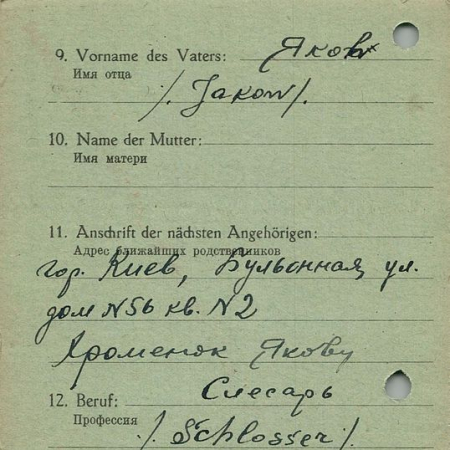 9. Vorname des Vaters: Яков
Имя отца
/. Jakow/.
10. Name der Mutter:
Имя матери
11. Anschrift der nächsten Angehörigen:
Адрес ближайших родственников
гор. Киев, Бульонная ул.
дом N56 кв. N2
Хроменок Якову
12. Beruf: Слесарь
Профессия
/. Schlosser/.